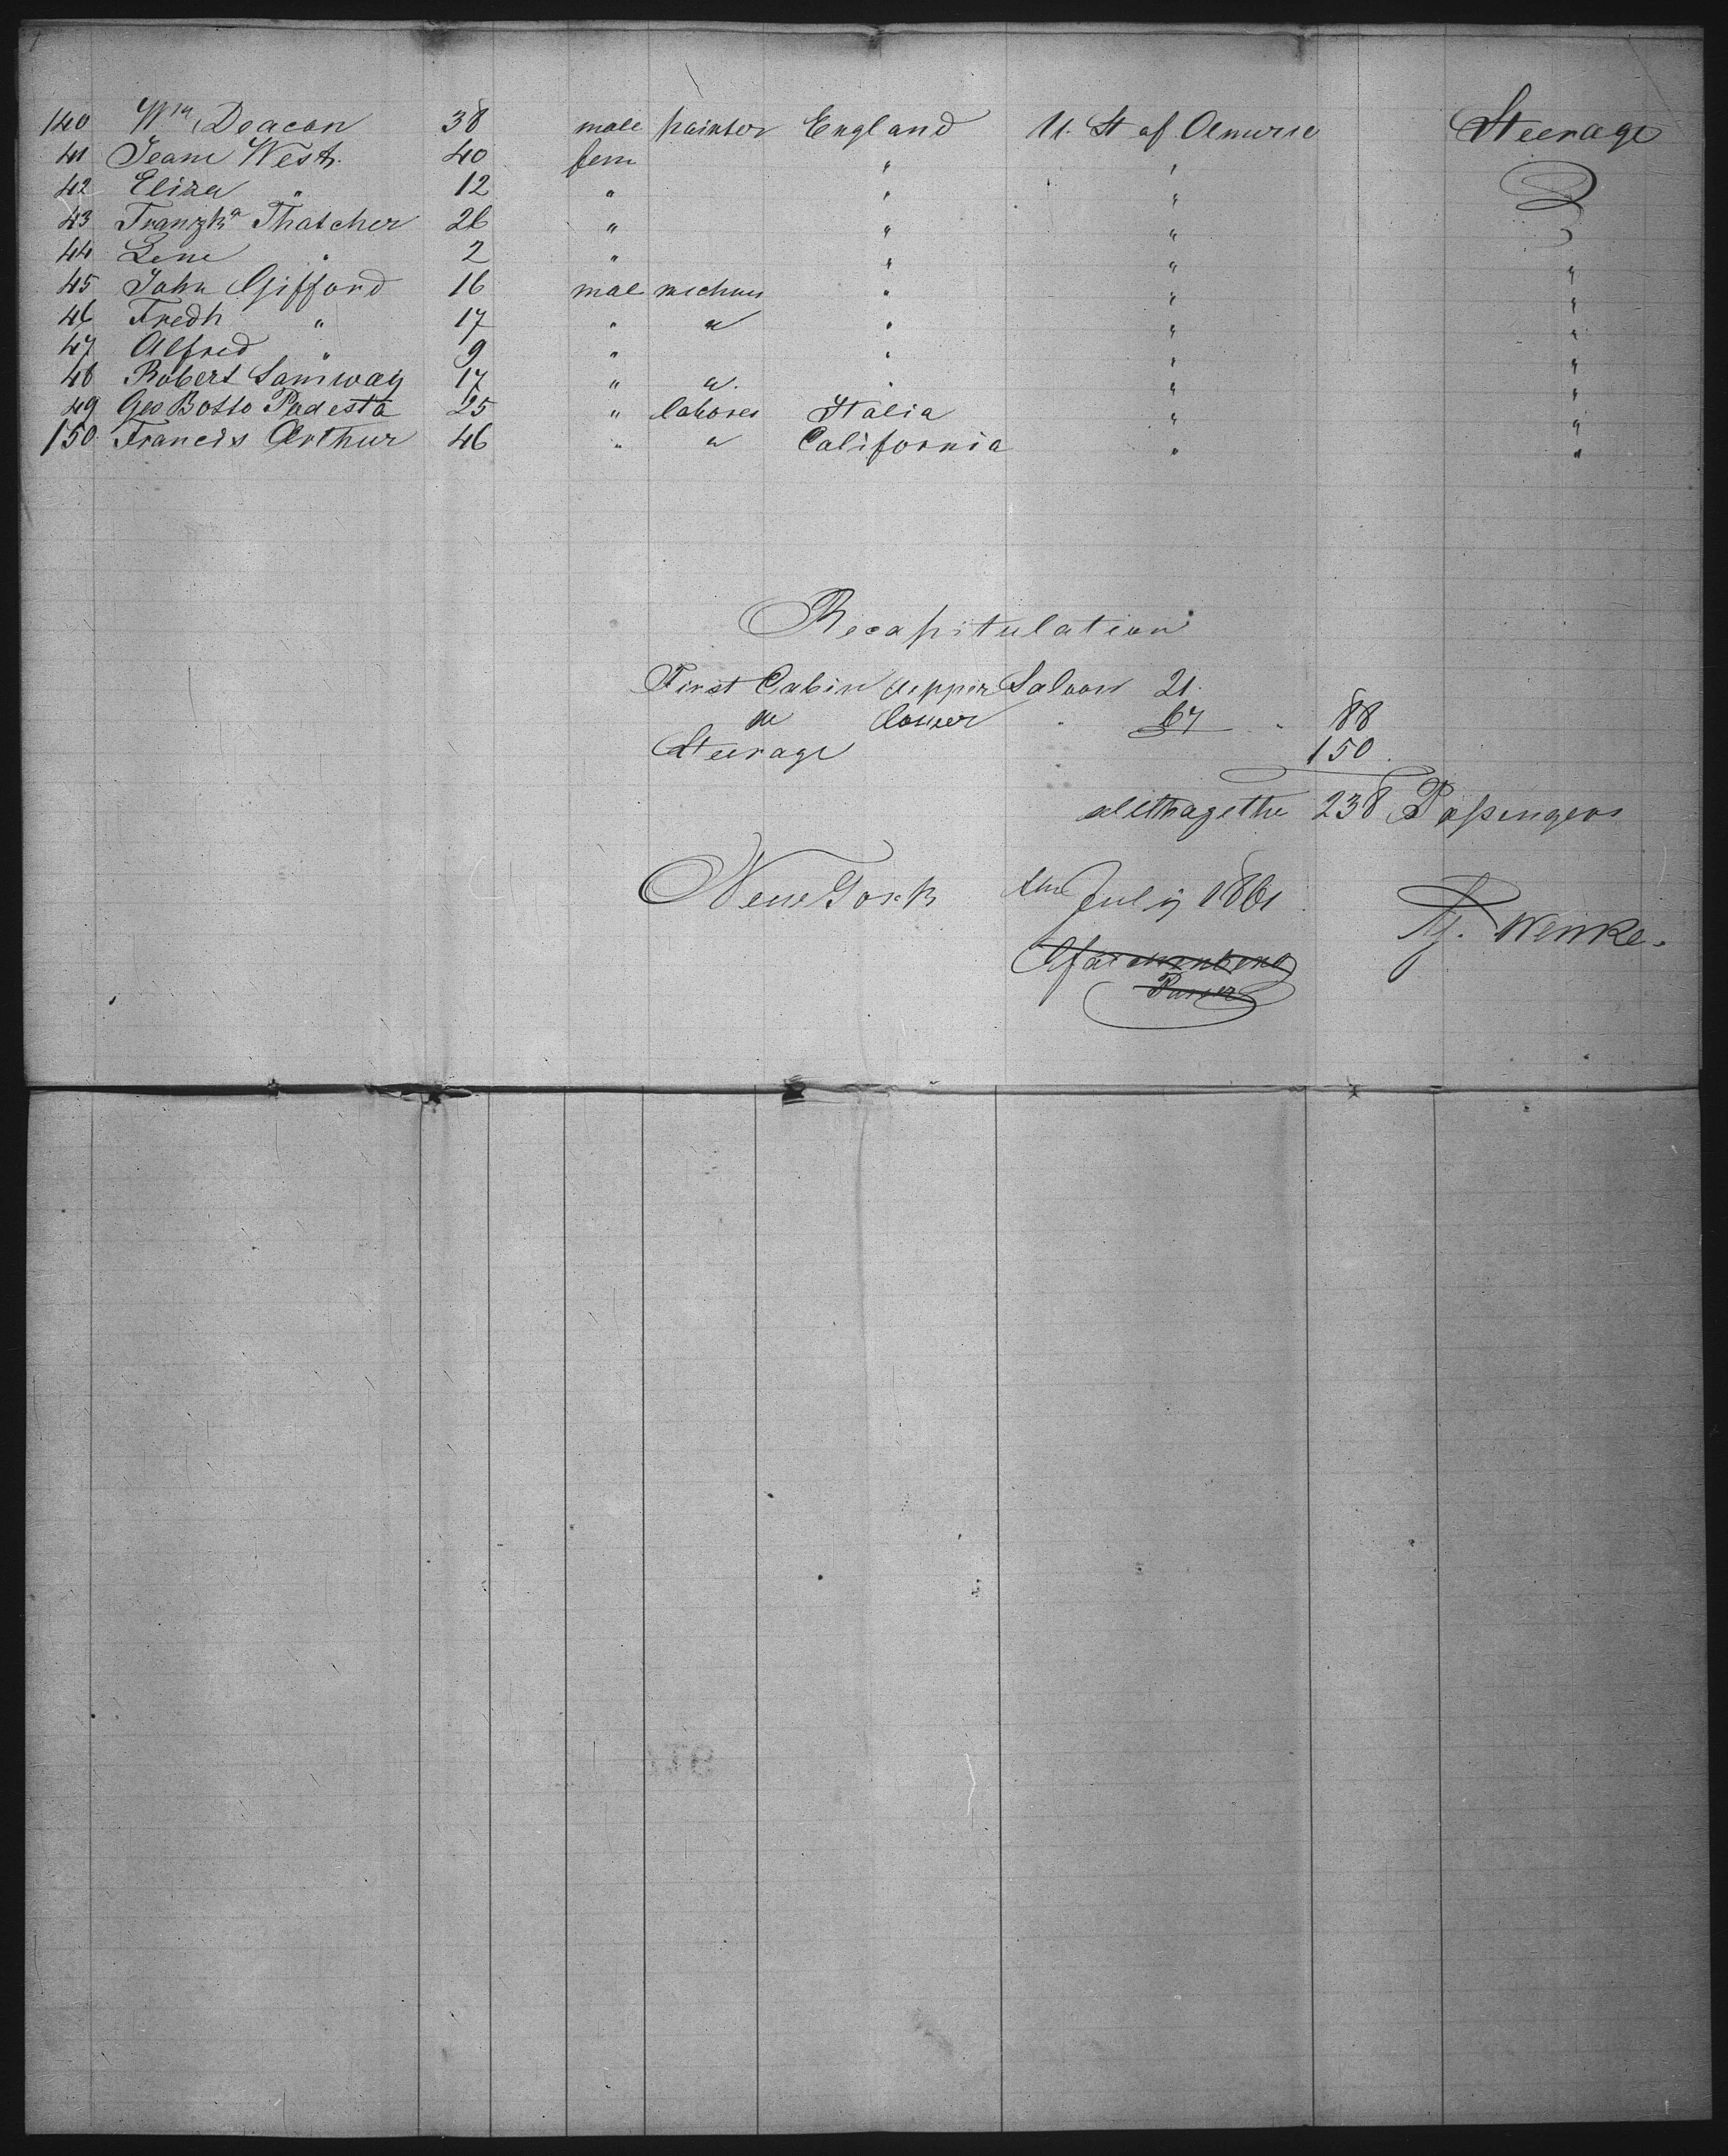 140 Wm Deacon 38 male painter England U. St of Americ Steerage
41 Jeane West 40 fem " " "
42 Eliza " 12 " " "
43 Franzka Thatcher 26 " " "
44 Lene " 2 " " " "
45 John Gifford 16 mal mechan " " "
46 Fredh " 17 " " " " "
47 Alfred " 9 " " " "
48 Robert Samway 17 " " " " "
49 Geo Botto Padesta 25 " labores Italia " "
150 Francis Arthur 46 " " California " "
Recapitulation
First Cabin upper Saloon 21
" lower " 67 " 88
Steerage 150
allthagethe 238 Passengers
New York the July 1861
H. Wenke.
Purser